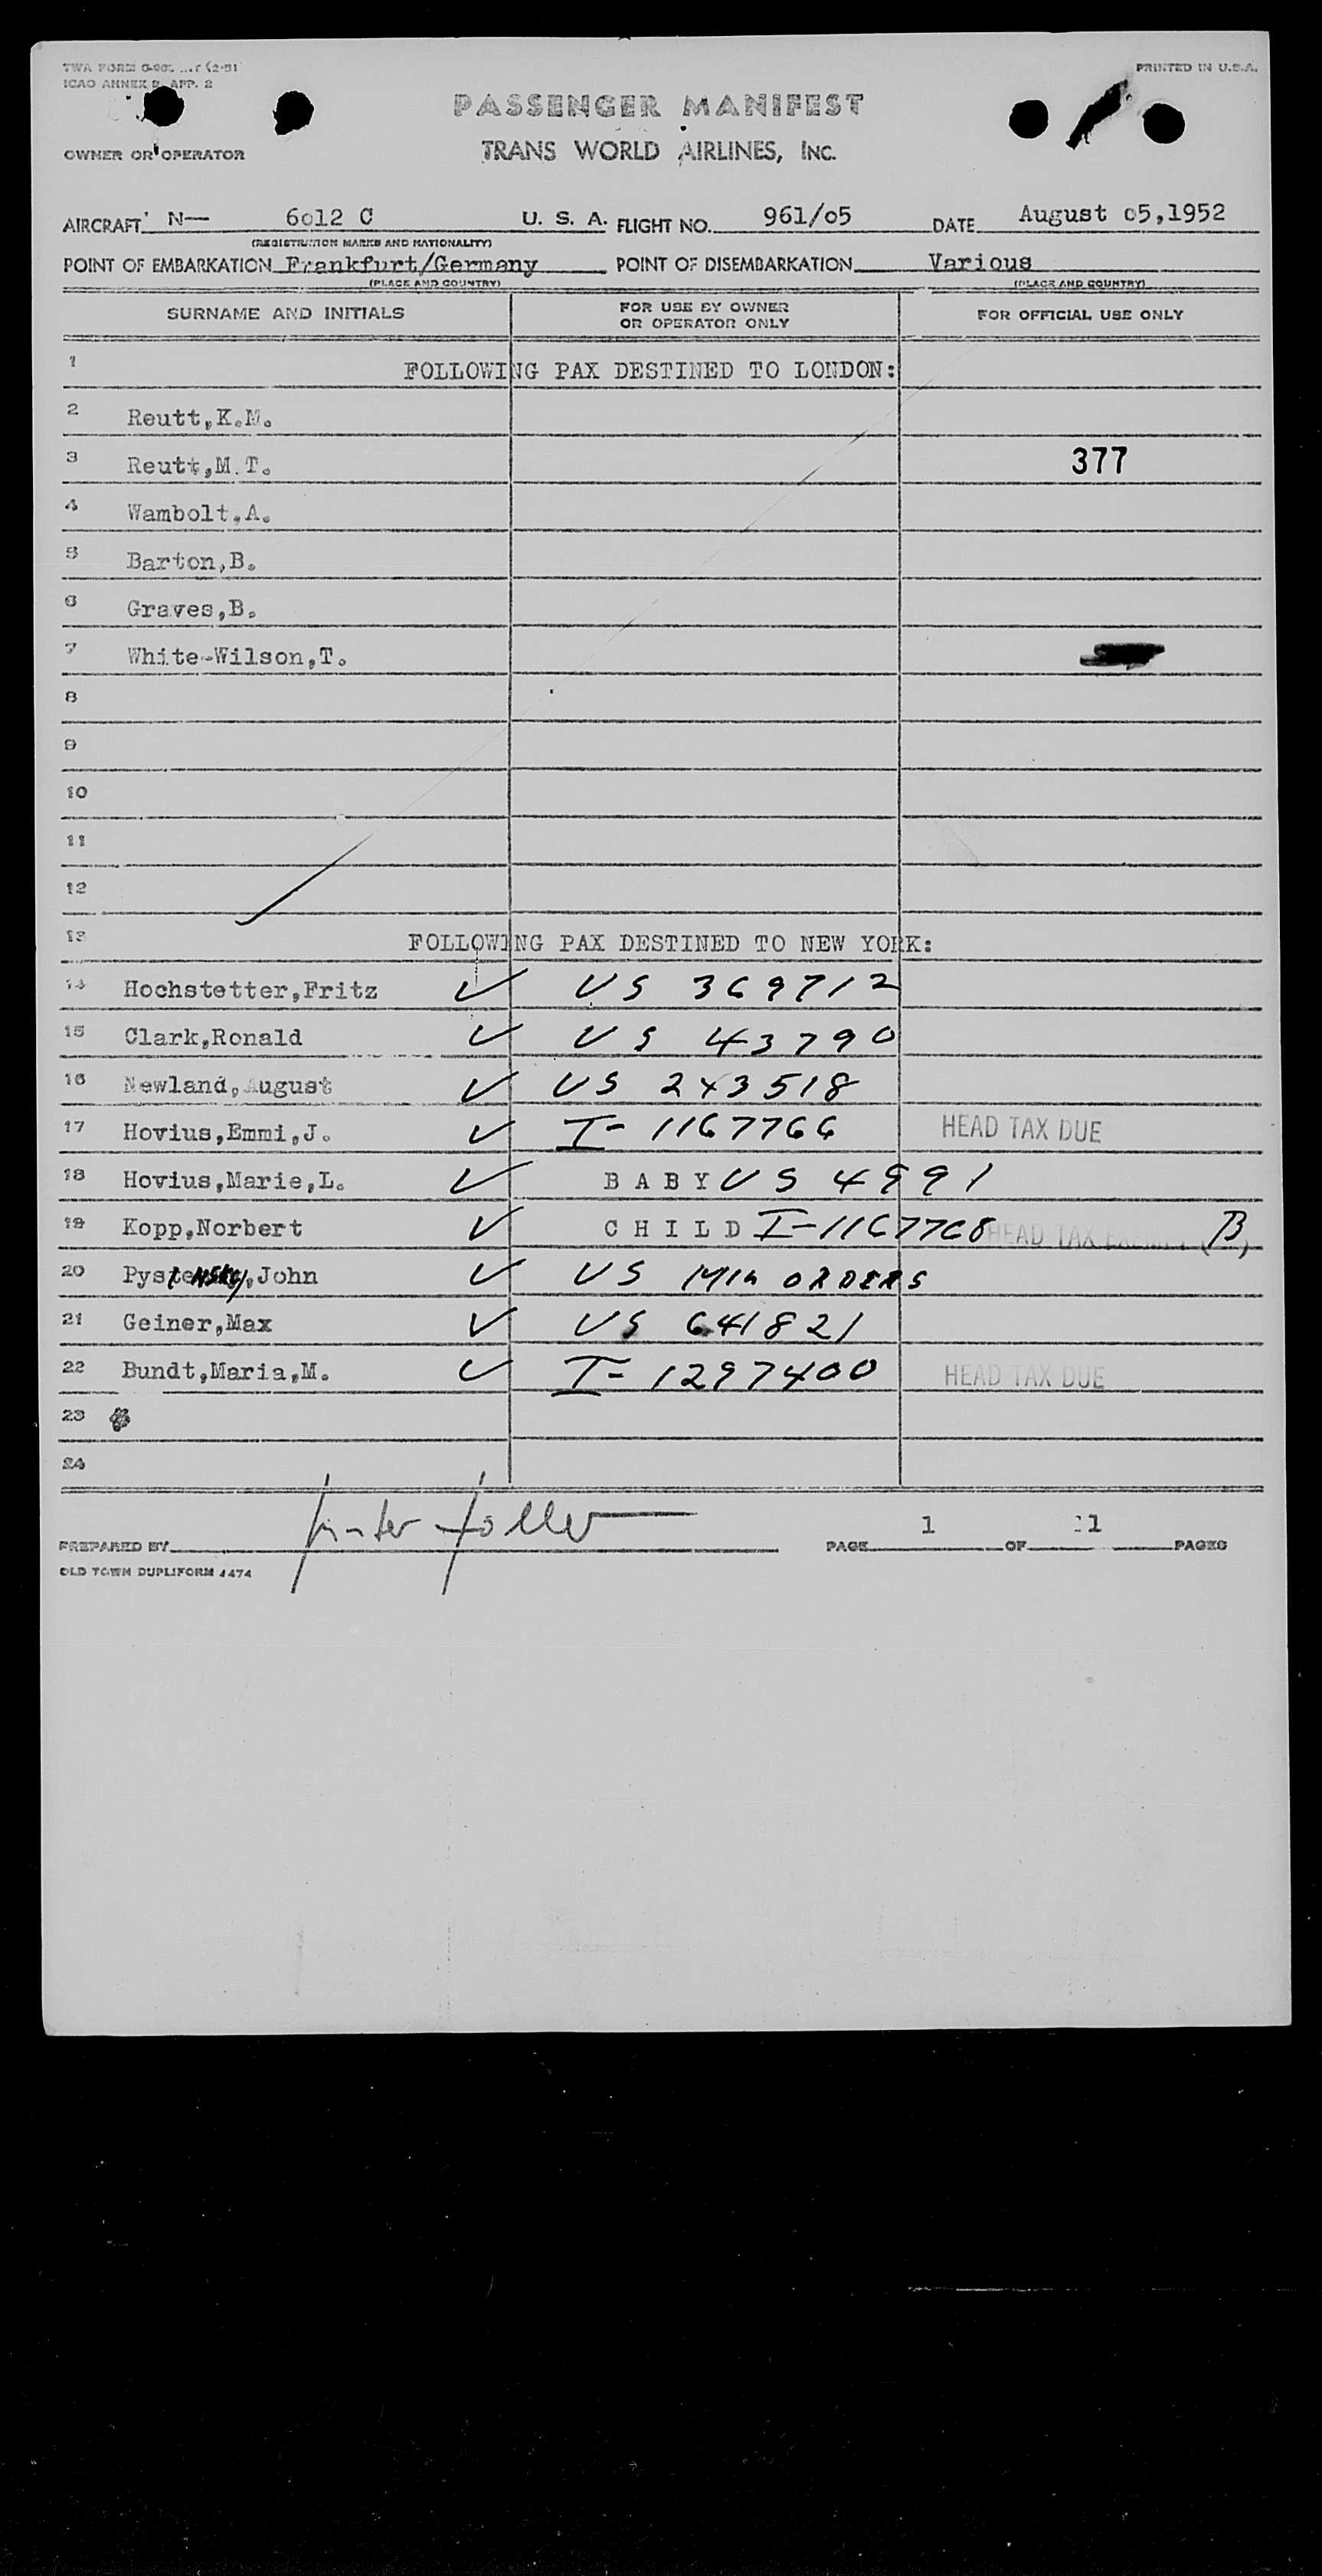 TWA FORM
ICAO ANNEX 9 APP. 2
PRINTED IN U.S.A.
PASSENGER MANIFEST
OWNER OR OPERATOR
TRANS WORLD AIRLINES, INC.
AIRCRAFT N— 6o12 C U. S. A. FLIGHT NO. 961/o5 DATE August o5,1952
(REGISTRATION MARKS AND NATIONALITY)
POINT OF EMBARKATION Frankfurt/Germany POINT OF DISEMBARKATION Various
(PLACE AND COUNTRY) (PLACE AND COUNTRY)
SURNAME AND INITIALS FOR USE BY OWNER OR OPERATOR ONLY FOR OFFICIAL USE ONLY
1 FOLLOWING PAX DESTINED TO LONDON:
2 Reutt,K.M.
3 Reutt,M.T. 377
4 Wambolt,A.
5 Barton,B.
6 Graves,B.
7 White-Wilson,T.
8
9
10
11
12
13 FOLLOWING PAX DESTINED TO NEW YORK:
14 Hochstetter,Fritz ✓ US 369712
15 Clark,Ronald ✓ US 43790
16 Newland,August ✓ US 243518
17 Hovius,Emmi,J. ✓ I-1167766 HEAD TAX DUE
18 Hovius,Marie,L. ✓ BABY US 4991
19 Kopp,Norbert ✓ CHILD I-1167768 HEAD TAX EXEMPT (B)
20 Pystensky,John ✓ US ORDERS
21 Geiner,Max ✓ US 641821
22 Bundt,Maria,M. ✓ I-1297400 HEAD TAX DUE
23
24
PREPARED BY PAGE 1 OF 11 PAGES
OLD TOWN DUPLIFORM 4474